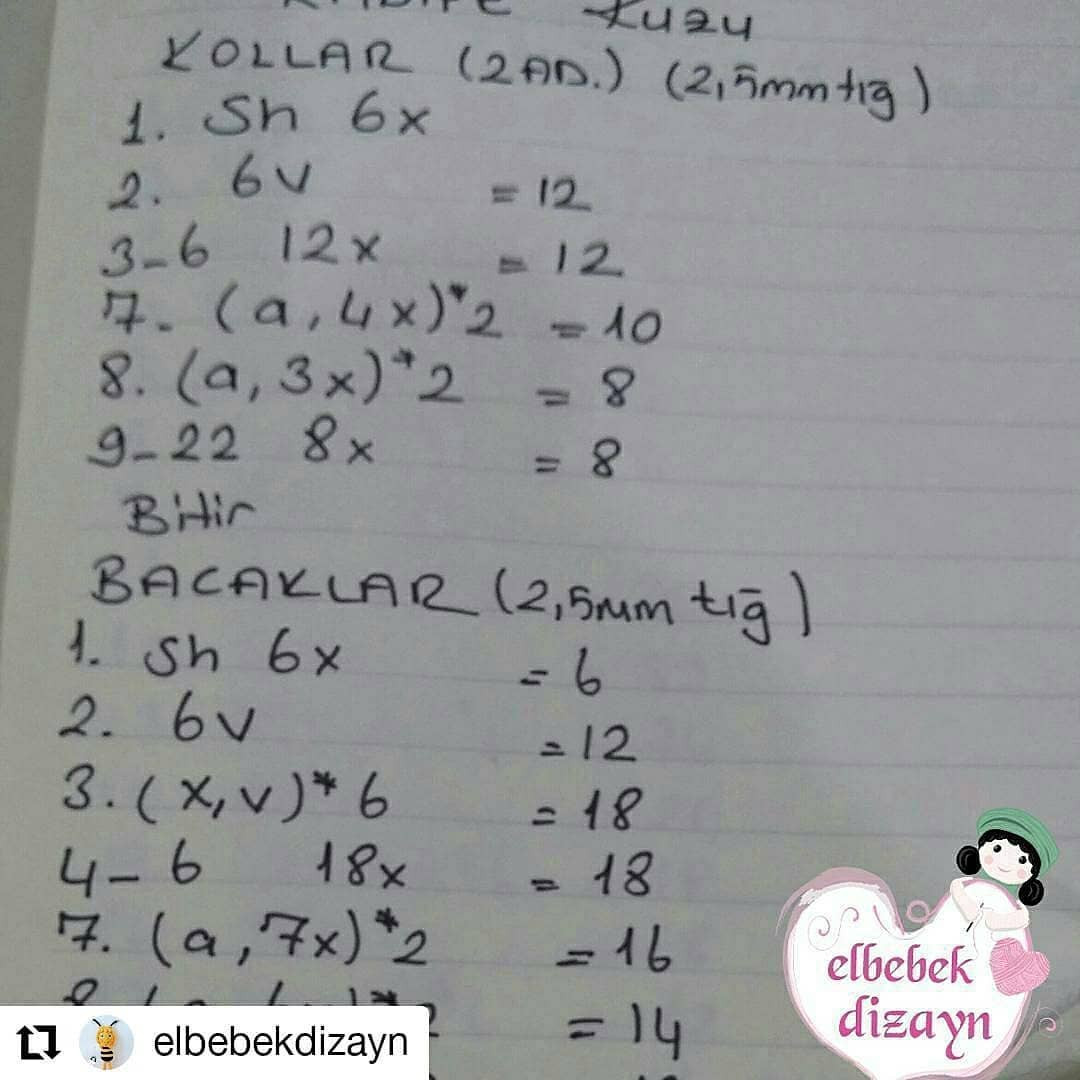 Kuzu
KOLLAR (2 AD.) (2,5mm tığ)
1. Sh 6x
2. 6v = 12
3-6 12x = 12
7. (a, 4x)*2 = 10
8. (a, 3x)*2 = 8
9-22 8x = 8
Bitir
BACAKLAR (2,5mm tığ)
1. Sh 6x = 6
2. 6v = 12
3. (x,v)*6 = 18
4-6 18x = 18
7. (a, 7x)*2 = 16
= 14
elbebek
dizayn
elbebekdizayn